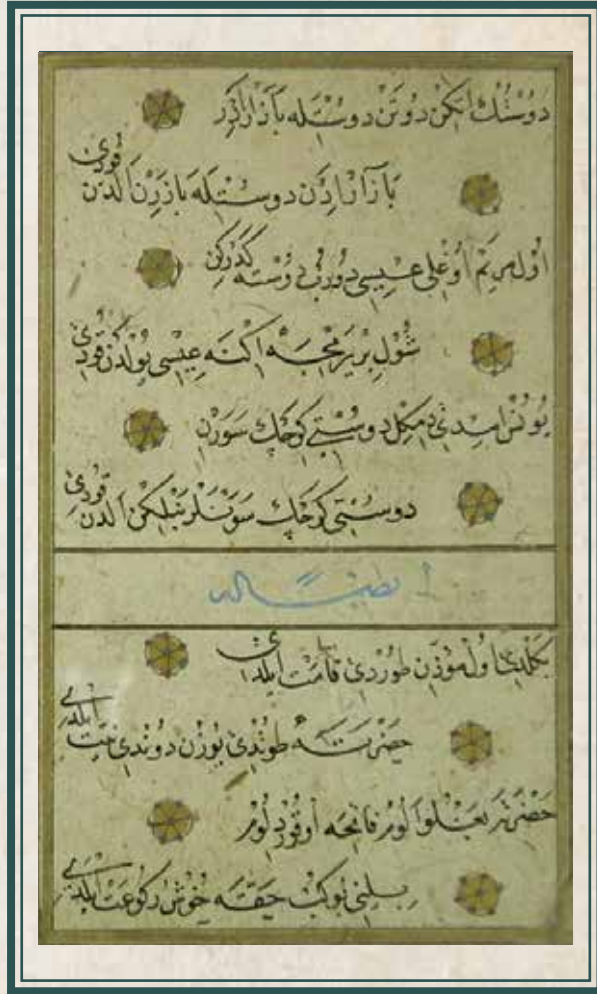 دوستك اتكن دوتن دوستله بازار ايدر
بازار ايدن دوستله بازرن الدن قودى
اول مريم اوغلى عيسى دورب دوسته كدركن
شول بر يرمجه اكنه عيسى يولدن قودى
يونس امدى دمكل دوستى كرجك سورن
دوستى كرجك سونلر بنلكن الدن قودى
ايضا له
بكلدى اول مؤذن طوردى قامت ايلدى
حضرته طوتدى يوزن دوندى نيت ايلدى
حضرتر بغلو الومز فاتحه اوقور دلومز
بلنى بوكب حقه خوش ركوعت ايلدى